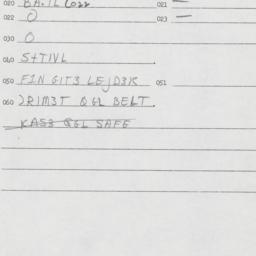 020 BA.IL CO22 021 —
022 0 023 —
030 0
040 S+TIVL
050 FIN GIT3 LEJD3R 051
060 2RIM3T QGL BELT.
KAS3 QGL SAFE